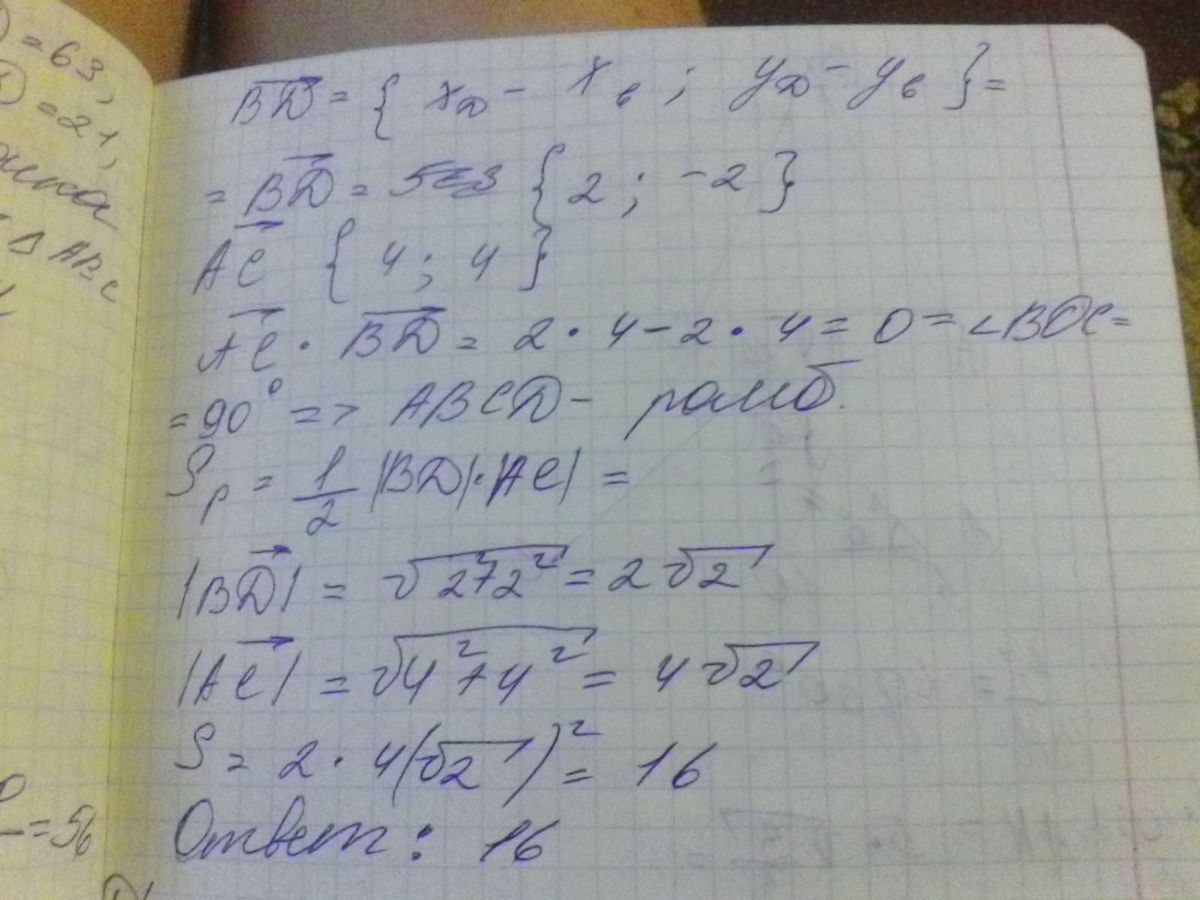 ) = 63,
) = 21,
Δ ABC
= 56
BD = { x_D - x_B ; y_D - y_B } =
= BD = { 2 ; -2 }
AC { 4 ; 4 }
AC · BD = 2 · 4 - 2 · 4 = 0 = ∠BOC =
= 90° => ABCD - ромб.
S_p = 1/2 |BD| · |AC| =
|BD| = √(2² + 2²) = 2√2
|AC| = √(4² + 4²) = 4√2
S = 2 · 4(√2)² = 16
Ответ: 16